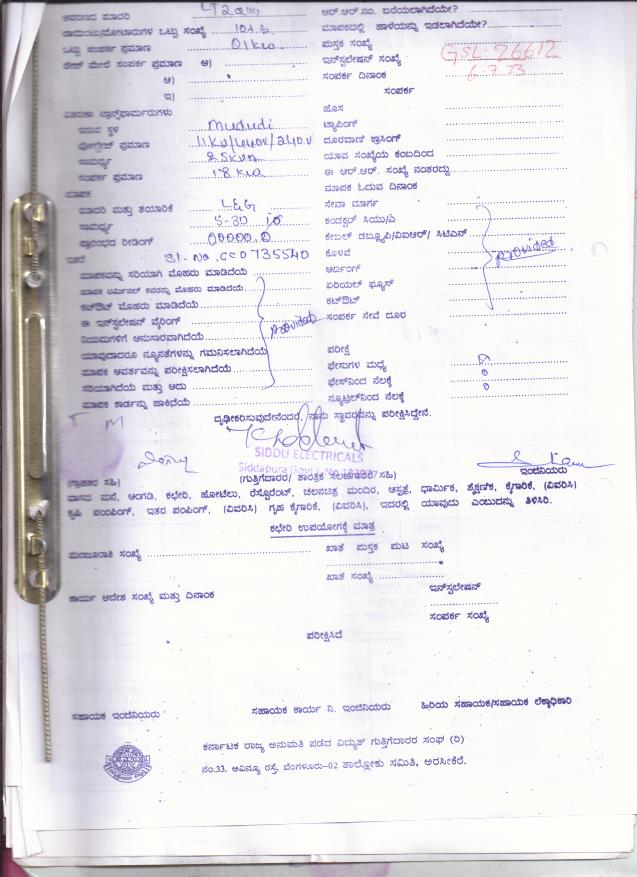 ಉಪಕರಣದ ಮಾದರಿ
ಆರ್.ಆರ್.ನಂ. ಬರೆಯಲಾಗಿದೆಯೇ?
ಕಾಯಿಂಟು/ಮೋಟಾರುಗಳ ಒಟ್ಟು ಸಂಖ್ಯೆ
ಮಾಪಕದಲ್ಲಿ ಹಾಳೆಯನ್ನು ಇಡಲಾಗಿದೆಯೇ?
ಒಟ್ಟು ಸಂಪರ್ಕ ಪ್ರಮಾಣ 01kw
ಪುಸ್ತಕ ಸಂಖ್ಯೆ
ಮೇಲೆ ಸಂಪರ್ಕ ಪ್ರಮಾಣ ಅ)
ಇನ್‌ಸ್ಟಲೇಷನ್ ಸಂಖ್ಯೆ GSL-26612
ಆ)
ಸಂಪರ್ಕ ದಿನಾಂಕ
ಇ)
ಸಂಪರ್ಕ
ವಿತರಣಾ ಟ್ರಾನ್ಸ್‌ಫಾರ್ಮರುಗಳು
ಹೊಸ
ಇರುವ ಸ್ಥಳ Mududi
ಟ್ಯಾಪಿಂಗ್
ವೋಲ್ಟೇಜ್ ಪ್ರಮಾಣ 11KV/440V/240V
ದೂರವಾಣಿ ಕ್ರಾಸಿಂಗ್
ಸಾಮರ್ಥ್ಯ 25kva
ಯಾವ ಸಂಖ್ಯೆಯ ಕಂಬದಿಂದ
ಸಂಪರ್ಕ ಪ್ರಮಾಣ 18kw
ಈ ಆರ್.ಆರ್. ಸಂಖ್ಯೆ ನಂತರದ್ದು
ಮಾಪಕ
ಮಾಪಕ ಓದುವ ದಿನಾಂಕ
ಮಾದರಿ ಮತ್ತು ತಯಾರಿಕೆ L&G
ಸೇವಾ ಮಾರ್ಗ
ಸಾಮರ್ಥ್ಯ 5-30
ಕಂಡಕ್ಟರ್ ಸಿಯು/ಎ
ಪ್ರಾರಂಭದ ರೀಡಿಂಗ್ 00000.0
ಕೇಬಲ್ ಡಬ್ಲ್ಯೂಪಿ/ವಿಐಆರ್/ ಸಿಟಿಎಸ್
ಇತರೆ Sl. No. CC0735540
ಕೊಳವೆ
ಮಾಪಕವನ್ನು ಸರಿಯಾಗಿ ಮೊಹರು ಮಾಡಿದೆಯೆ
ಅರ್ದಿಂಗ್ provided
ಮಾಪಕ ಟರ್ಮಿನಲ್ ಕವರನ್ನು ಮೊಹರು ಮಾಡಿದೆಯೆ
ಏರಿಯಲ್ ಫ್ಯೂಸ್
ಕಟ್‌ಔಟ್ ಮೊಹರು ಮಾಡಿದೆಯೆ
ಕಟ್‌ಔಟ್
ಈ ಇನ್‌ಸ್ಟಲೇಷನ್ ವೈರಿಂಗ್ provided
ಸಂಪರ್ಕ ಸೇವೆ ದೂರ
ನಿಯಮಗಳಿಗೆ ಅನುಸಾರವಾಗಿದೆಯೆ
ಯಾವುದಾದರೂ ನ್ಯೂನತೆಗಳನ್ನು ಗಮನಿಸಲಾಗಿದೆಯೆ
ಪರೀಕ್ಷೆ
ಮಾಪಕ ಆವರ್ತವನ್ನು ಪರೀಕ್ಷಿಸಲಾಗಿದೆಯೆ
ಫೇಸುಗಳ ಮಧ್ಯೆ
ಸರಿಯಾಗಿದೆಯೆ ಮತ್ತು ಅದು
ಫೇಸ್‌ನಿಂದ ನೆಲಕ್ಕೆ
ಮಾಪಕ ಕಾರ್ಡನ್ನು ಹಾಕಿಧೆಯೆ
ನ್ಯೂಟ್ರಲ್‌ನಿಂದ ನೆಲಕ್ಕೆ
ದೃಢೀಕರಿಸುವುದೇನೆಂದರೆ, ನಾನು ಸ್ಥಾವರವನ್ನು ಪರೀಕ್ಷಿಸಿದ್ದೇನೆ.
SIDDU ELECTRICALS
Siddapura Govt
(ಗ್ರಾಹಕರ ಸಹಿ) (ಗುತ್ತಿಗೆದಾರರ/ ತಾಂತ್ರಿಕ ಸಲಹೆಗಾರರ ಸಹಿ) ಇಂಜಿನಿಯರು
ವಾಸದ ಮನೆ, ಅಂಗಡಿ, ಕಛೇರಿ, ಹೋಟೆಲು, ರೆಸ್ಟೊರೆಂಟ್, ಚಲನಚಿತ್ರ ಮಂದಿರ, ಆಸ್ಪತ್ರೆ, ಧಾರ್ಮಿಕ, ಶೈಕ್ಷಣಿಕ, ಕೈಗಾರಿಕೆ, (ವಿವರಿಸಿ)
ಕೃಷಿ ಪಂಪಿಂಗ್, ಇತರ ಪಂಪಿಂಗ್, (ವಿವರಿಸಿ) ಗೃಹ ಕೈಗಾರಿಕೆ, (ವಿವರಿಸಿ), ಇದರಲ್ಲಿ ಯಾವುದು ಎಂಬುದನ್ನು ತಿಳಿಸಿರಿ.
ಕಛೇರಿ ಉಪಯೋಗಕ್ಕೆ ಮಾತ್ರ
ಮಂಜೂರಾತಿ ಸಂಖ್ಯೆ
ಖಾತೆ ಪುಸ್ತಕ ಪುಟ ಸಂಖ್ಯೆ
ಖಾತೆ ಸಂಖ್ಯೆ
ಕಾರ್ಯ ಆದೇಶ ಸಂಖ್ಯೆ ಮತ್ತು ದಿನಾಂಕ
ಇನ್‌ಸ್ಟಲೇಷನ್
ಸಂಪರ್ಕ ಸಂಖ್ಯೆ
ಪರೀಕ್ಷಿಸಿದೆ
ಸಹಾಯಕ ಇಂಜಿನಿಯರು ಸಹಾಯಕ ಕಾರ್ಯ ನಿ. ಇಂಜಿನಿಯರು ಹಿರಿಯ ಸಹಾಯಕ/ಸಹಾಯಕ ಲೆಕ್ಕಾಧಿಕಾರಿ
ಕರ್ನಾಟಕ ರಾಜ್ಯ ಅನುಮತಿ ಪಡೆದ ವಿದ್ಯುತ್ ಗುತ್ತಿಗೆದಾರರ ಸಂಘ (ರಿ)
ನಂ.33. ಅವಿನ್ಯೂ ರಸ್ತೆ, ಬೆಂಗಳೂರು-02 ತಾಲ್ಲೋಕು ಸಮಿತಿ, ಅರಸೀಕೆರೆ.